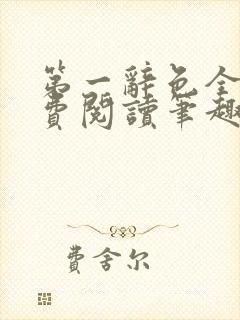 第一辭色全
費閱讀筆趣
費舍尔